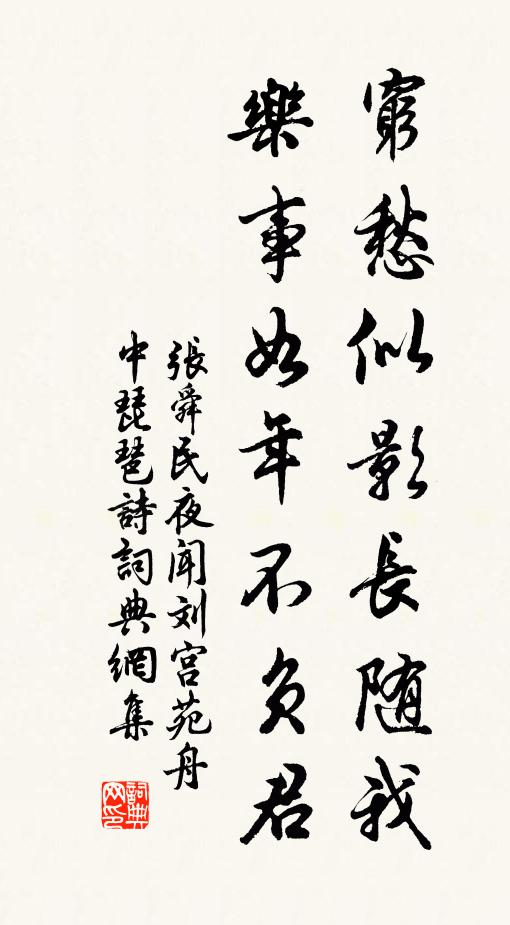 窮愁似影長随我
樂事如年不負君
張舜民夜闻刘宫苑舟
中琵琶詩詞典網集
詞典
网印